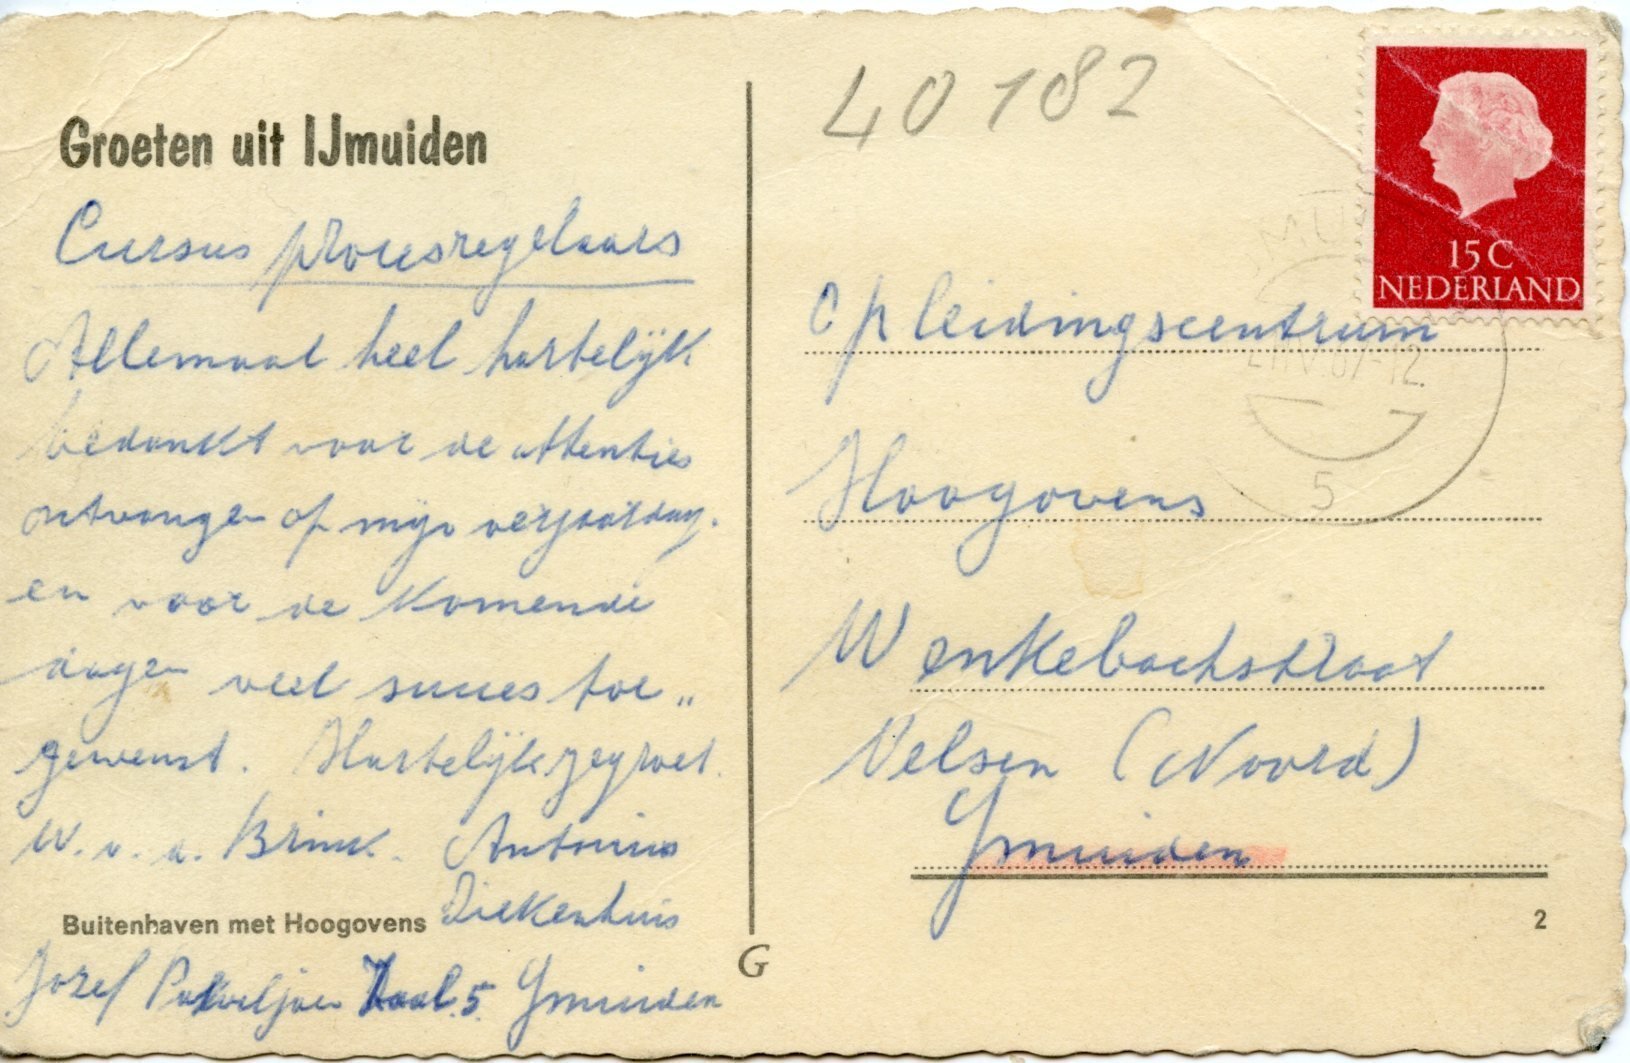 Groeten uit IJmuiden
Cursus procesregelaars
Allemaal heel hartelijk
bedankt voor de attenties
ontvangen op mijn verjaardag.
en voor de komende
dagen veel succes toe„
gewenst. Hartelijk gegroet.
W. v. d. Brink. Antonius
Ziekenhuis
Buitenhaven met Hoogovens
Jozef Paviljoen Zaal 5 Ymuiden
G
40182
15 C
NEDERLAND
Opleidingscentrum
Hoogovens
Wenkebachstraat
Velsen (Noord)
Ymuiden
5
2